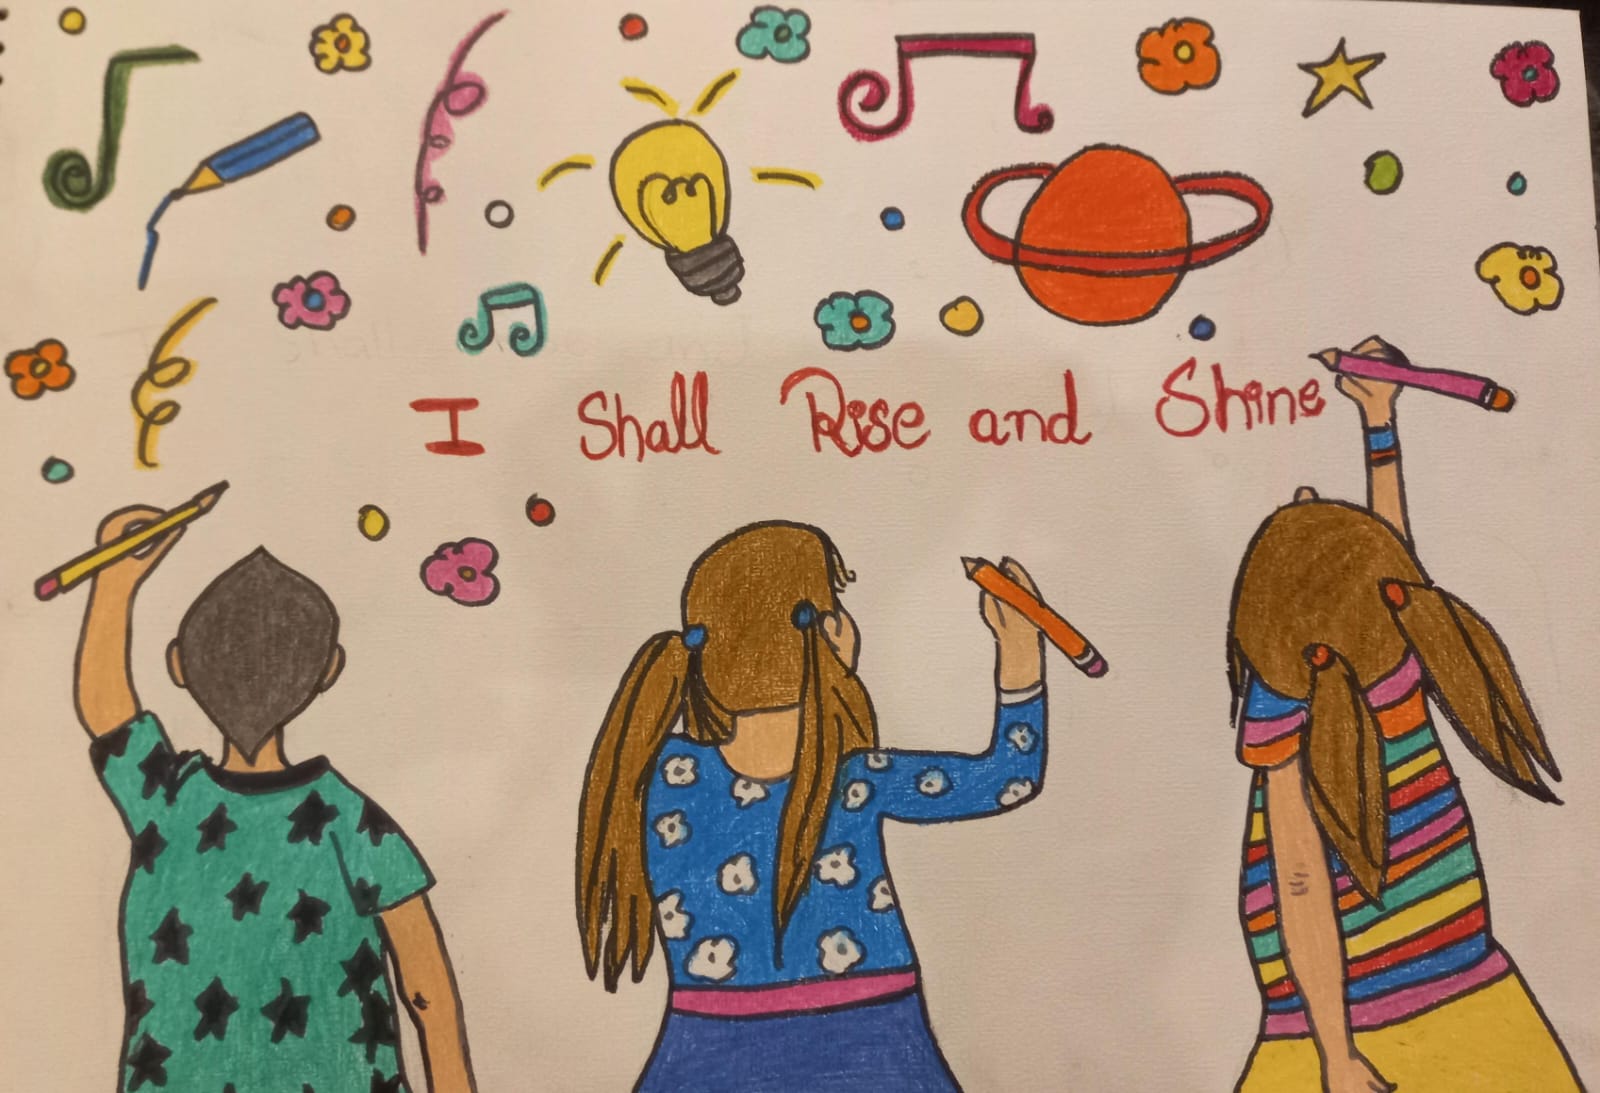 I Shall Rise and Shine